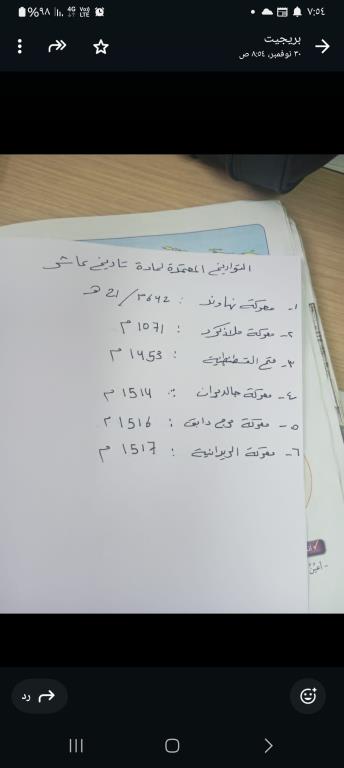 ٧:٥٤ ٩٨%
4G Vo) LTE
بريجيت
٣٠ نوفمبر، ٨:٥٤ ص
التواريخ المعتمدة لمادة تاريخ عاشر
١- معركة نهاوند : 642م / 21 هـ
٢- معركة ملاذكرد : 1071 م
٣- فتح القسطنطينية : 1453 م
٤- معركة جالديران : 1514 م
٥- معركة مرج دابق : 1516 م
٦- معركة الريدانية : 1517 م
رد